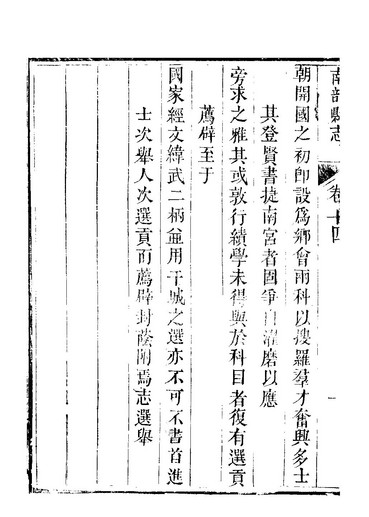 南部縣志 卷十四 一
朝開國之初卽設爲鄉會兩科以搜羅羣才奮興多士
其登賢書捷南宮者固爭自濯磨以應
旁求之雅其或敦行績學未得與於科目者復有選貢
薦辟至于
國家經文緯武二柄並用干城之選亦不可不書首進
士次舉人次選貢而薦辟封蔭附焉志選舉